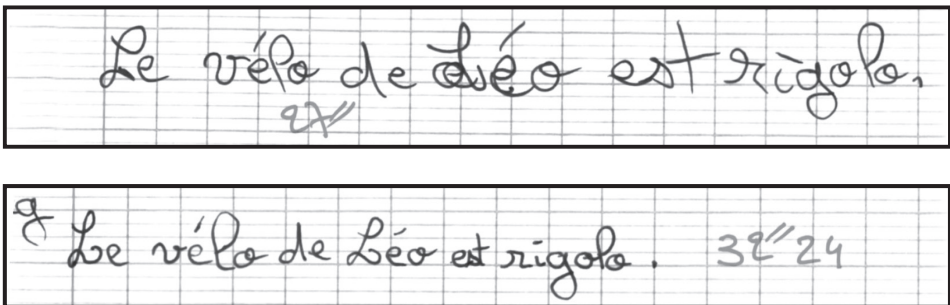 Le vélo de Léo est rigolo.
27"
g Le vélo de Léo est rigolo. 32"24